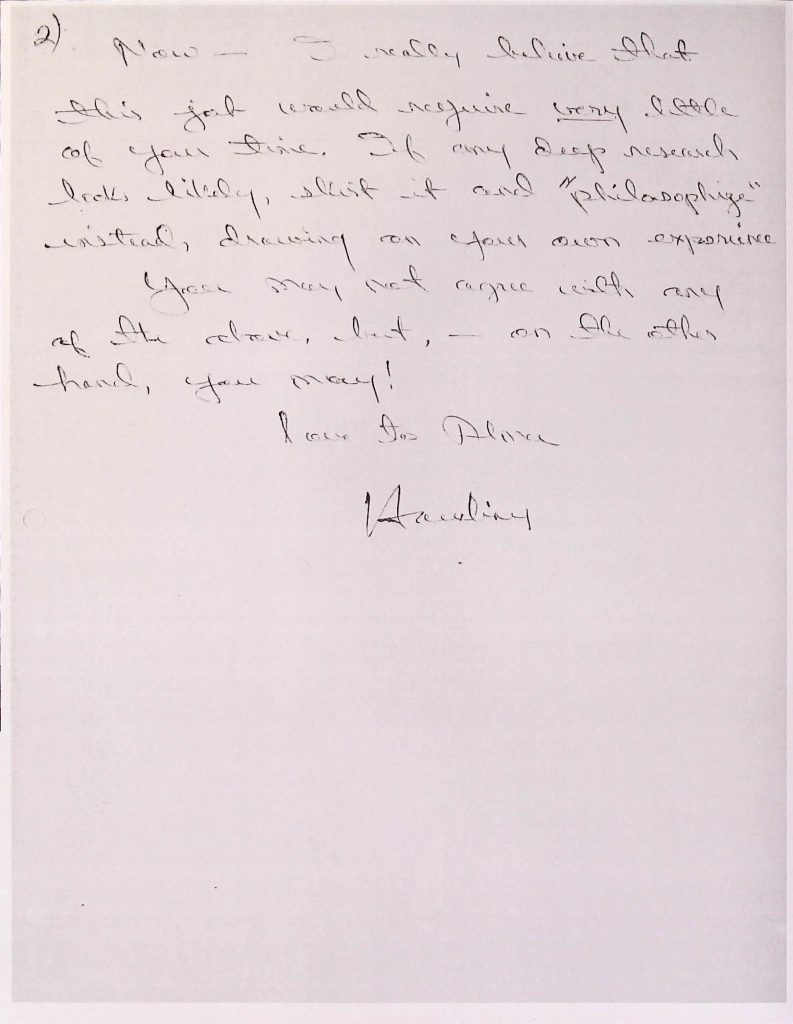 2)
Now — I really believe that
this job would require very little
of your time. If any deep research
looks likely, skirt it and "philosophize"
instead, drawing on your own experience
You may not agree with any
of the above, but, — on the other
hand, you may!
Love to